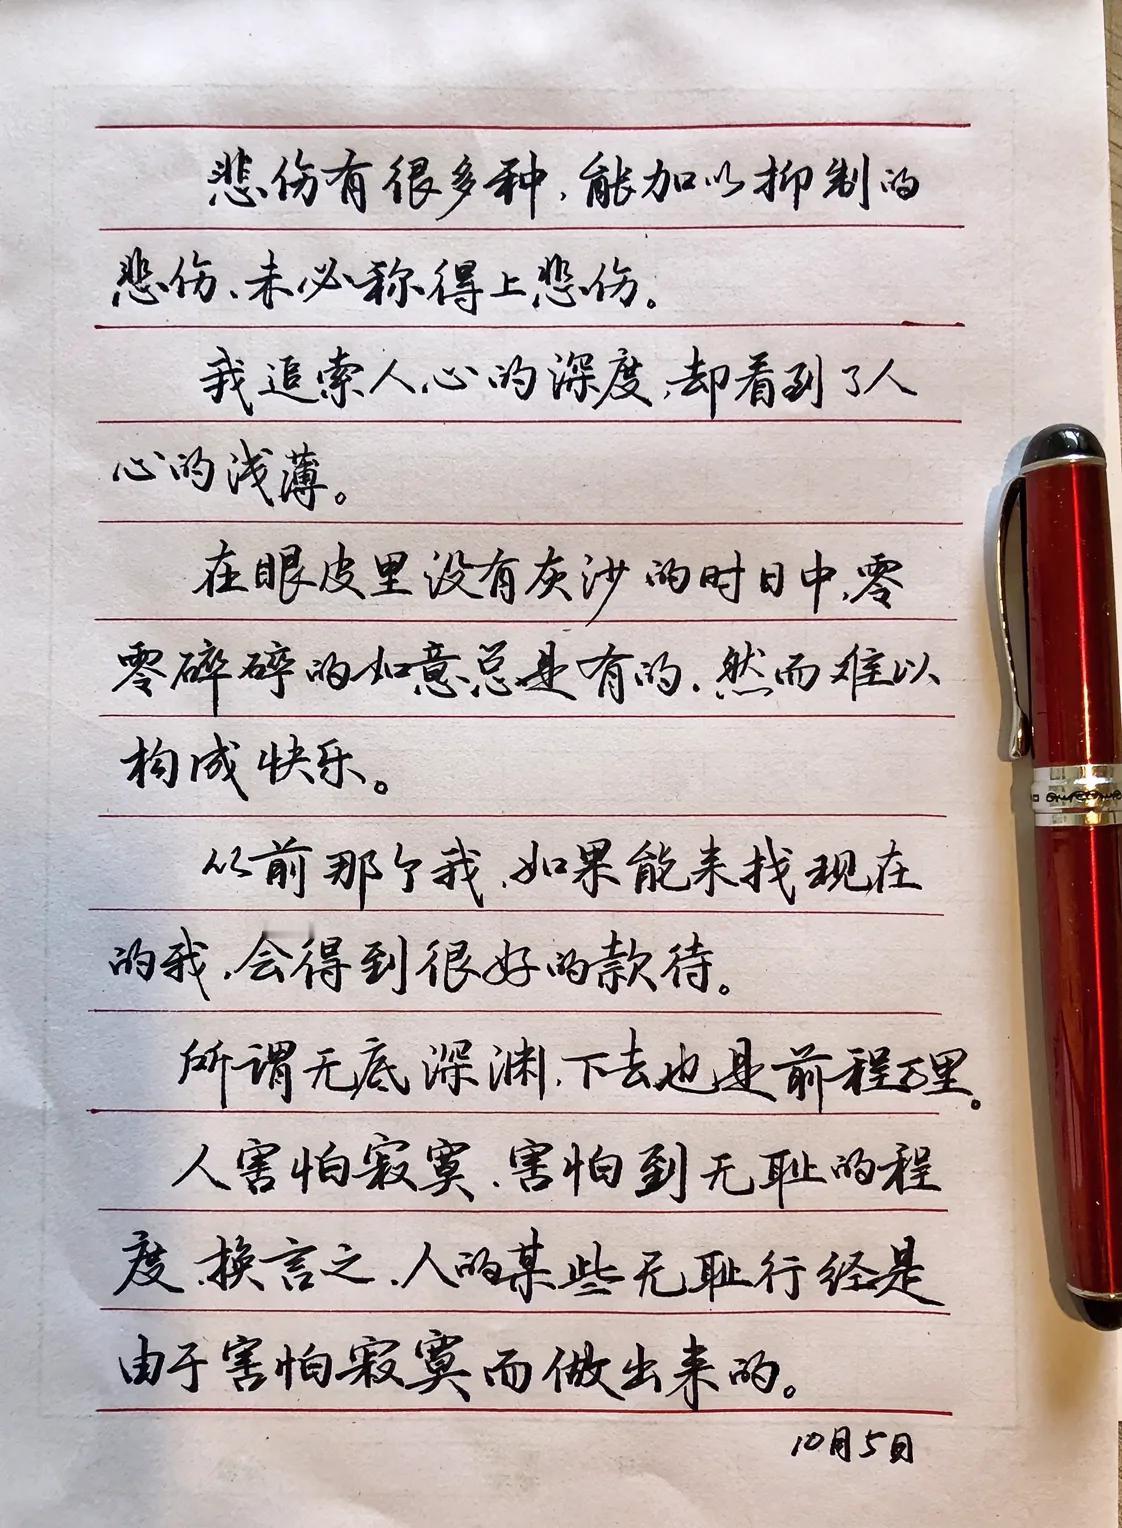 悲伤有很多种,能加以抑制的
悲伤、未必称得上悲伤。
我追索人心的深度,却看到了人
心的浅薄。
在眼皮里没有灰沙的时日中,零
零碎碎的如意总是有的,然而难以
构成快乐。
以前那个我,如果能来找现在
的我,会得到很好的款待。
所谓无底深渊,下去也是前程万里。
人害怕寂寞,害怕到无耻的程
度,换言之,人的某些无耻行经是
由于害怕寂寞而做出来的。
10月5日